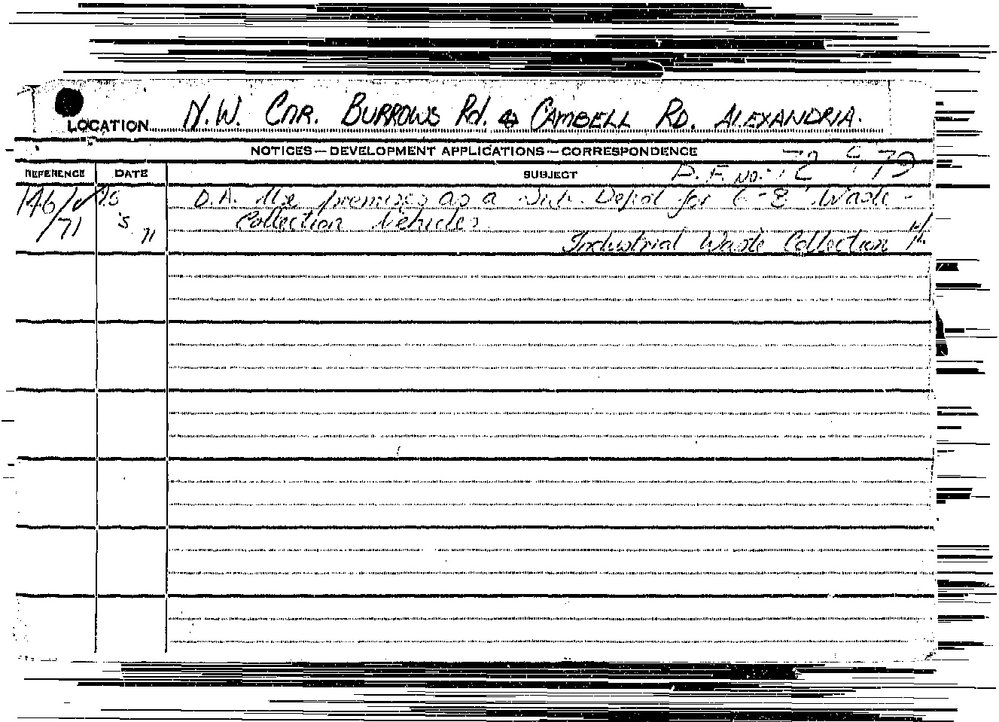 LOCATION N.W. CNR. BURROWS RD. & CAMBELL RD. ALEXANDRIA.
NOTICES—DEVELOPMENT APPLICATIONS—CORRESPONDENCE
REFERENCE DATE SUBJECT
146/ D.A. Use premises as a Sub. Depot for 6-8 Waste -
/71 5 71 Collection Vehicles
Industrial Waste Collection